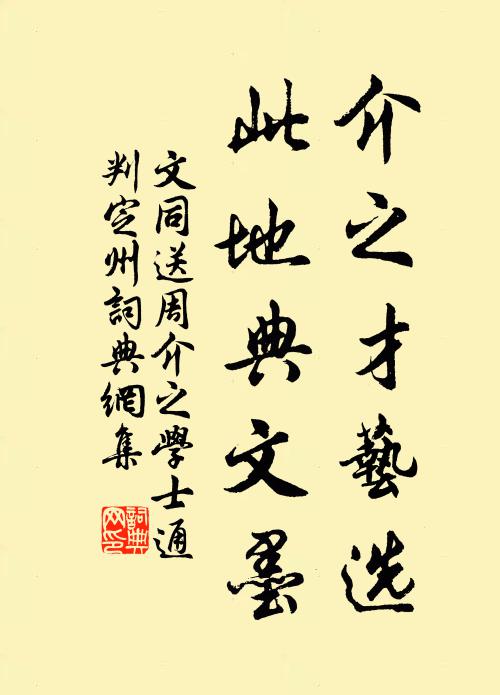 介之才藝选
此地典文墨
文同送周介之學士通
判定州詞典網集
詞典網印